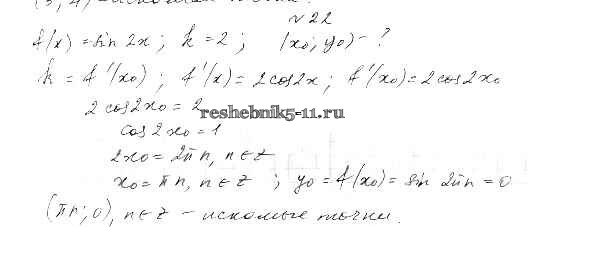 №22
f(x) = sin 2x ; k = 2 ; (x₀; y₀) - ?
k = f'(x₀) ; f'(x) = 2cos2x ; f'(x₀) = 2cos2x₀
2cos2x₀ = 2
reshebnik5-11.ru
cos2x₀ = 1
2x₀ = 2πn, n∈Z
x₀ = πn, n∈Z ; y₀ = f(x₀) = sin 2πn = 0
(πn; 0), n∈Z - искомые точки.